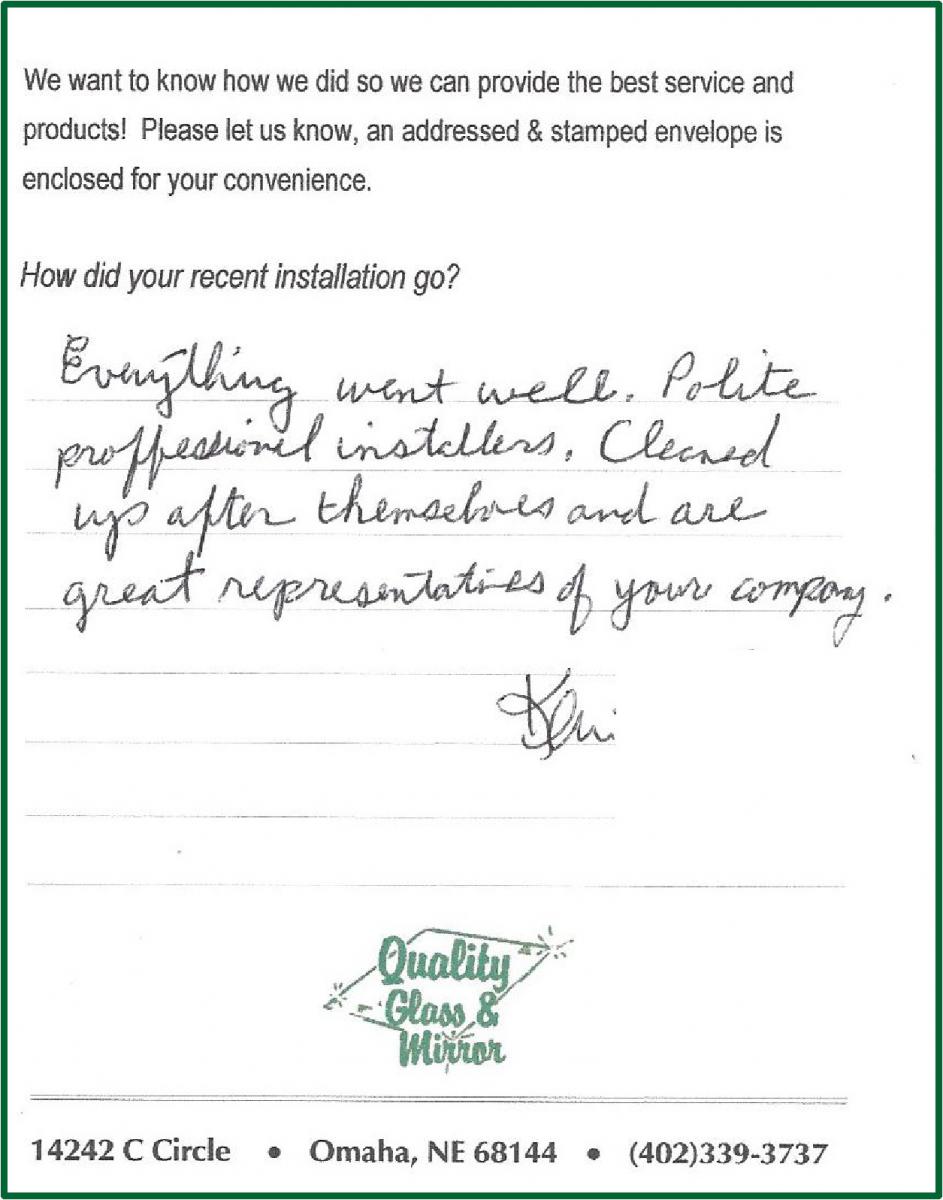 We want to know how we did so we can provide the best service and
products! Please let us know, an addressed & stamped envelope is
enclosed for your convenience.
How did your recent installation go?
Everything went well. Polite
proffessional installers. Cleaned
up after themselves and are
great representatives of your company.
Quality
Glass &
Mirror
14242 C Circle • Omaha, NE 68144 • (402)339-3737